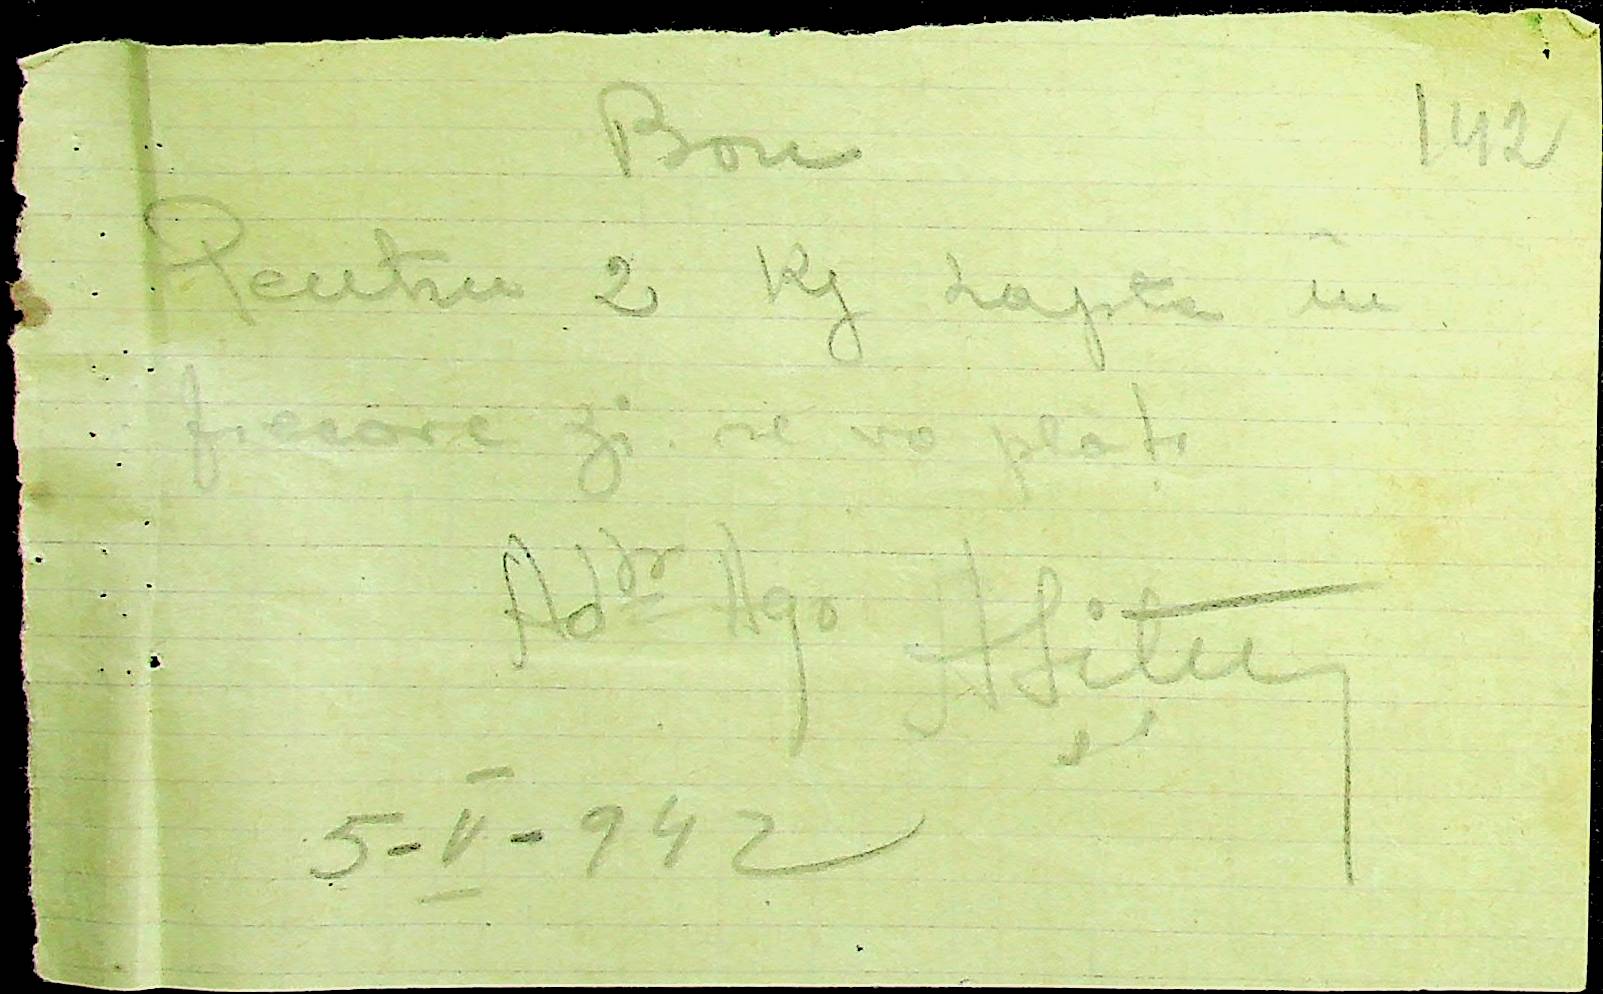 Bon 142
Pentru 2 Kg Lapte în
fiecare zi se va plăti
Adtr Ago
5-II-942